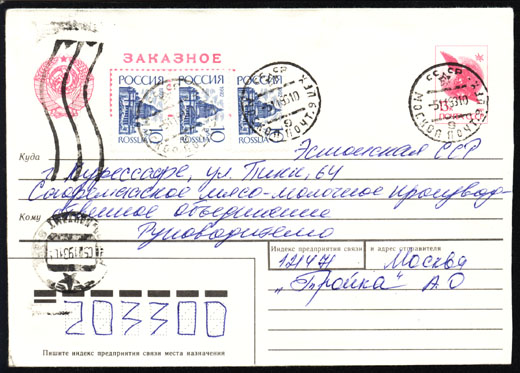 ЗАКАЗНОЕ
РОССИЯ РОССИЯ РОССИЯ
10 10 10
ROSSIJA ROSSIJA ROSSIJA
Куда
Эстонская ССР
г. Курессааре, ул. Пикк, 64
Сааремааское мясо-молочное производ-
ственное объединение
Кому
Руководителю
Индекс предприятия связи и адрес отправителя
121471 Москва
„Тройка" А.О
203300
Пишите индекс предприятия связи места назначения